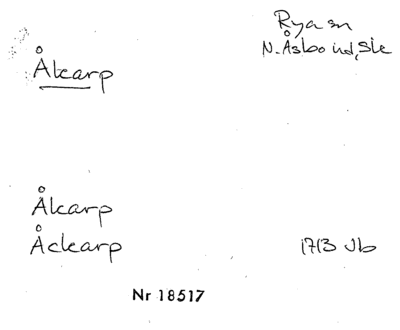 Rya sn
N. Åsbo hd, Sk
Åkarp
Åkarp
Åckarp 1713 Jb
Nr 18517